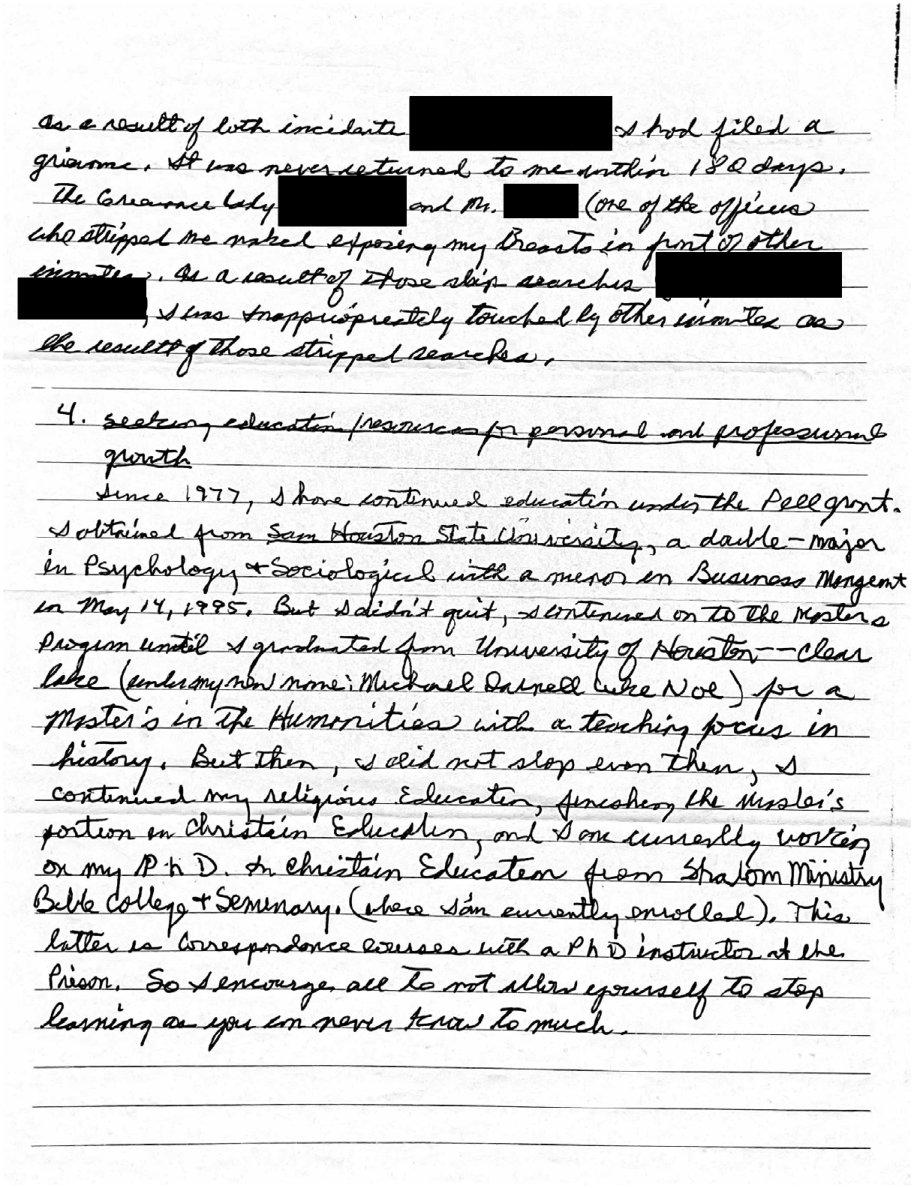 as a result of both incidents I had filed a
grievance. It was never returned to me within 180 days.
The Grievance lady and Mr. (one of the officers
who stripped me naked exposing my Breasts in front of other
inmates. As a result of those skip searches
, I was Inappropriately touched by other inmates as
the result of those stripped searches.
4. seeking education/resources for personal and professional
growth
Since 1977, I have continued education under the Pell grant.
I obtained from Sam Houston State University, a double-major
in Psychology & Sociological with a menor in Business Mangemt
in May 14, 1995. But I didn't quit, I continued on to the Masters
Program until I graduated from University of Houston--Clear
lake (under my new name: Michael Darnell Luke Noe) for a
Master's in the Humanities with a teaching focus in
history. But then, I did not stop even then, I
continued my religious Education, finishing the Master's
portion in Christain Education, and I am currently working
on my PhD. In Christain Education from Shalom Ministry
Bible College & Seminary. (where I am currently enrolled). This
latter is Correspondance courses with a PhD instructor at the
Prison. So I encourage all to not allow yourself to stop
learning as you can never know to much.